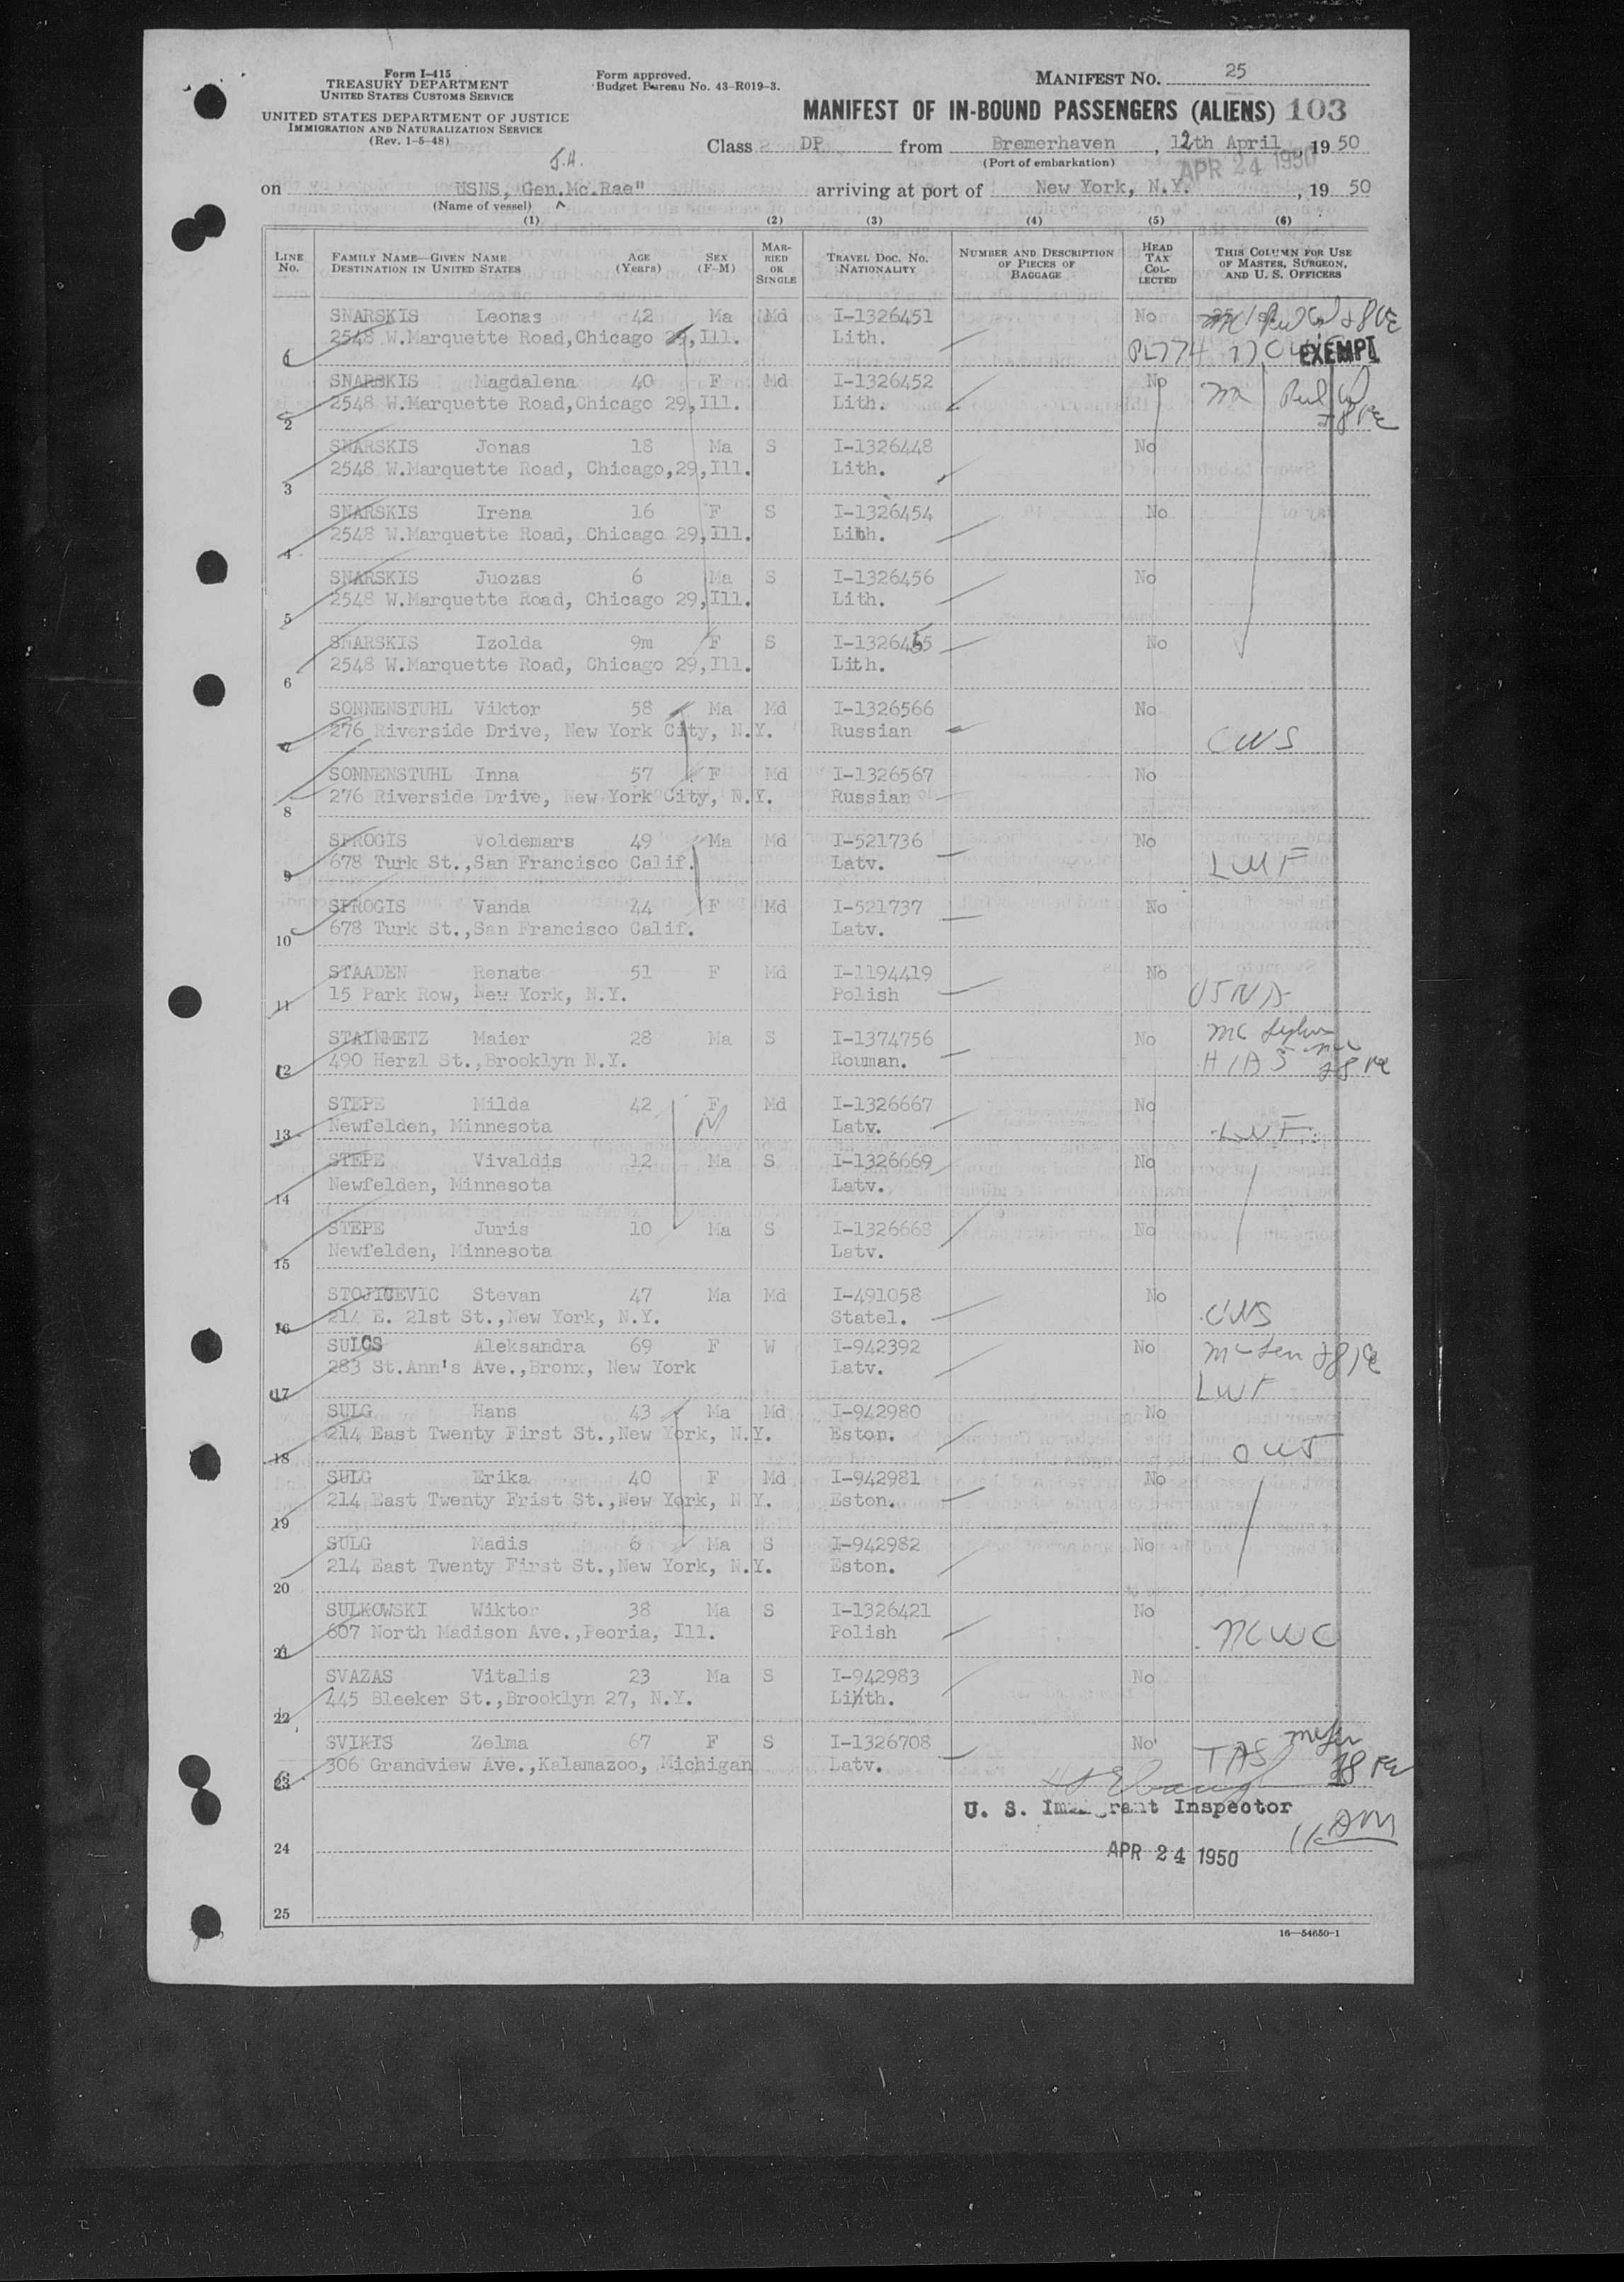 Form I-415
TREASURY DEPARTMENT
UNITED STATES CUSTOMS SERVICE
UNITED STATES DEPARTMENT OF JUSTICE
IMMIGRATION AND NATURALIZATION SERVICE
(Rev. 1-5-48)
Form approved.
Budget Bureau No. 43-R019-3.
MANIFEST NO. 25
MANIFEST OF IN-BOUND PASSENGERS (ALIENS) 103
Class DP from Bremerhaven, 12th April, 19 50
(Port of embarkation)
APR 24 1950
J.H.
on USNS, Gen. Mc.Rae" arriving at port of New York, N.Y., 19 50
(Name of vessel) ^
(1) (2) (3) (4) (5) (6)
LINE No. FAMILY NAME—GIVEN NAME DESTINATION IN UNITED STATES AGE (Years) SEX (F-M) MARRIED OR SINGLE TRAVEL DOC. NO. NATIONALITY NUMBER AND DESCRIPTION OF PIECES OF BAGGAGE HEAD TAX COLLECTED THIS COLUMN FOR USE OF MASTER, SURGEON, AND U. S. OFFICERS
SNARSKIS Leonas 42 Ma Md I-1326451 No
2548 W.Marquette Road,Chicago 29,Ill. Lith.
1 PL774 EXEMPT
SNARSKIS Magdalena 40 F Md I-1326452 No
2548 W.Marquette Road,Chicago 29,Ill. Lith.
2
SNARSKIS Jonas 18 Ma S I-1326448 No
2548 W.Marquette Road, Chicago,29,Ill. Lith.
3
SNARSKIS Irena 16 F S I-1326454 No
2548 W.Marquette Road, Chicago 29,Ill. Lith.
4
SNARSKIS Juozas 6 Ma S I-1326456 No
2548 W.Marquette Road, Chicago 29,Ill. Lith.
5
SNARSKIS Izolda 9m F S I-1326455 No
2548 W.Marquette Road, Chicago 29,Ill. Lith.
6
SONNENSTUHL Viktor 58 Ma Md I-1326566 No
276 Riverside Drive, New York City, N.Y. Russian CWS
7
SONNENSTUHL Inna 57 F Md I-1326567 No
276 Riverside Drive, New York City, N.Y. Russian
8
SPROGIS Voldemars 49 Ma Md I-521736 No
678 Turk St.,San Francisco Calif. Latv. LWF
9
SPROGIS Vanda 44 F Md I-521737 No
678 Turk St.,San Francisco Calif. Latv.
10
STAADEN Renate 51 F Md I-1194419 No
15 Park Row, New York, N.Y. Polish USNA
11
STAINMETZ Maier 28 Ma S I-1374756 No
490 Herzl St.,Brooklyn N.Y. Rouman. HIAS
12
STEPE Milda 42 F Md I-1326667 No
Newfelden, Minnesota Latv. LWF
13
STEPE Vivaldis 12 Ma S I-1326669 No
Newfelden, Minnesota Latv.
14
STEPE Juris 10 Ma S I-1326668 No
Newfelden, Minnesota Latv.
15
STOJICEVIC Stevan 47 Ma Md I-491058 No
214 E. 21st St.,New York, N.Y. Statel. CWS
16
SULCS Aleksandra 69 F W I-942392 No
283 St.Ann's Ave.,Bronx, New York Latv.
17 LWF
SULG Hans 43 Ma Md I-942980 No
214 East Twenty First St.,New York, N.Y. Eston.
18
SULG Erika 40 F Md I-942981 No
214 East Twenty Frist St.,New York, N Y. Eston.
19
SULG Madis 6 Ma S I-942982 No
214 East Twenty First St.,New York, N.Y. Eston.
20
SULKOWSKI Wiktor 38 Ma S I-1326421 No
607 North Madison Ave.,Peoria, Ill. Polish NCWC
21
SVAZAS Vitalis 23 Ma S I-942983 No
445 Bleeker St.,Brooklyn 27, N.Y. Lith.
22
SVIKIS Zelma 67 F S I-1326708 No
306 Grandview Ave.,Kalamazoo, Michigan Latv.
23
U. S. Immigrant Inspector
24 APR 24 1950
25
16—54650-1